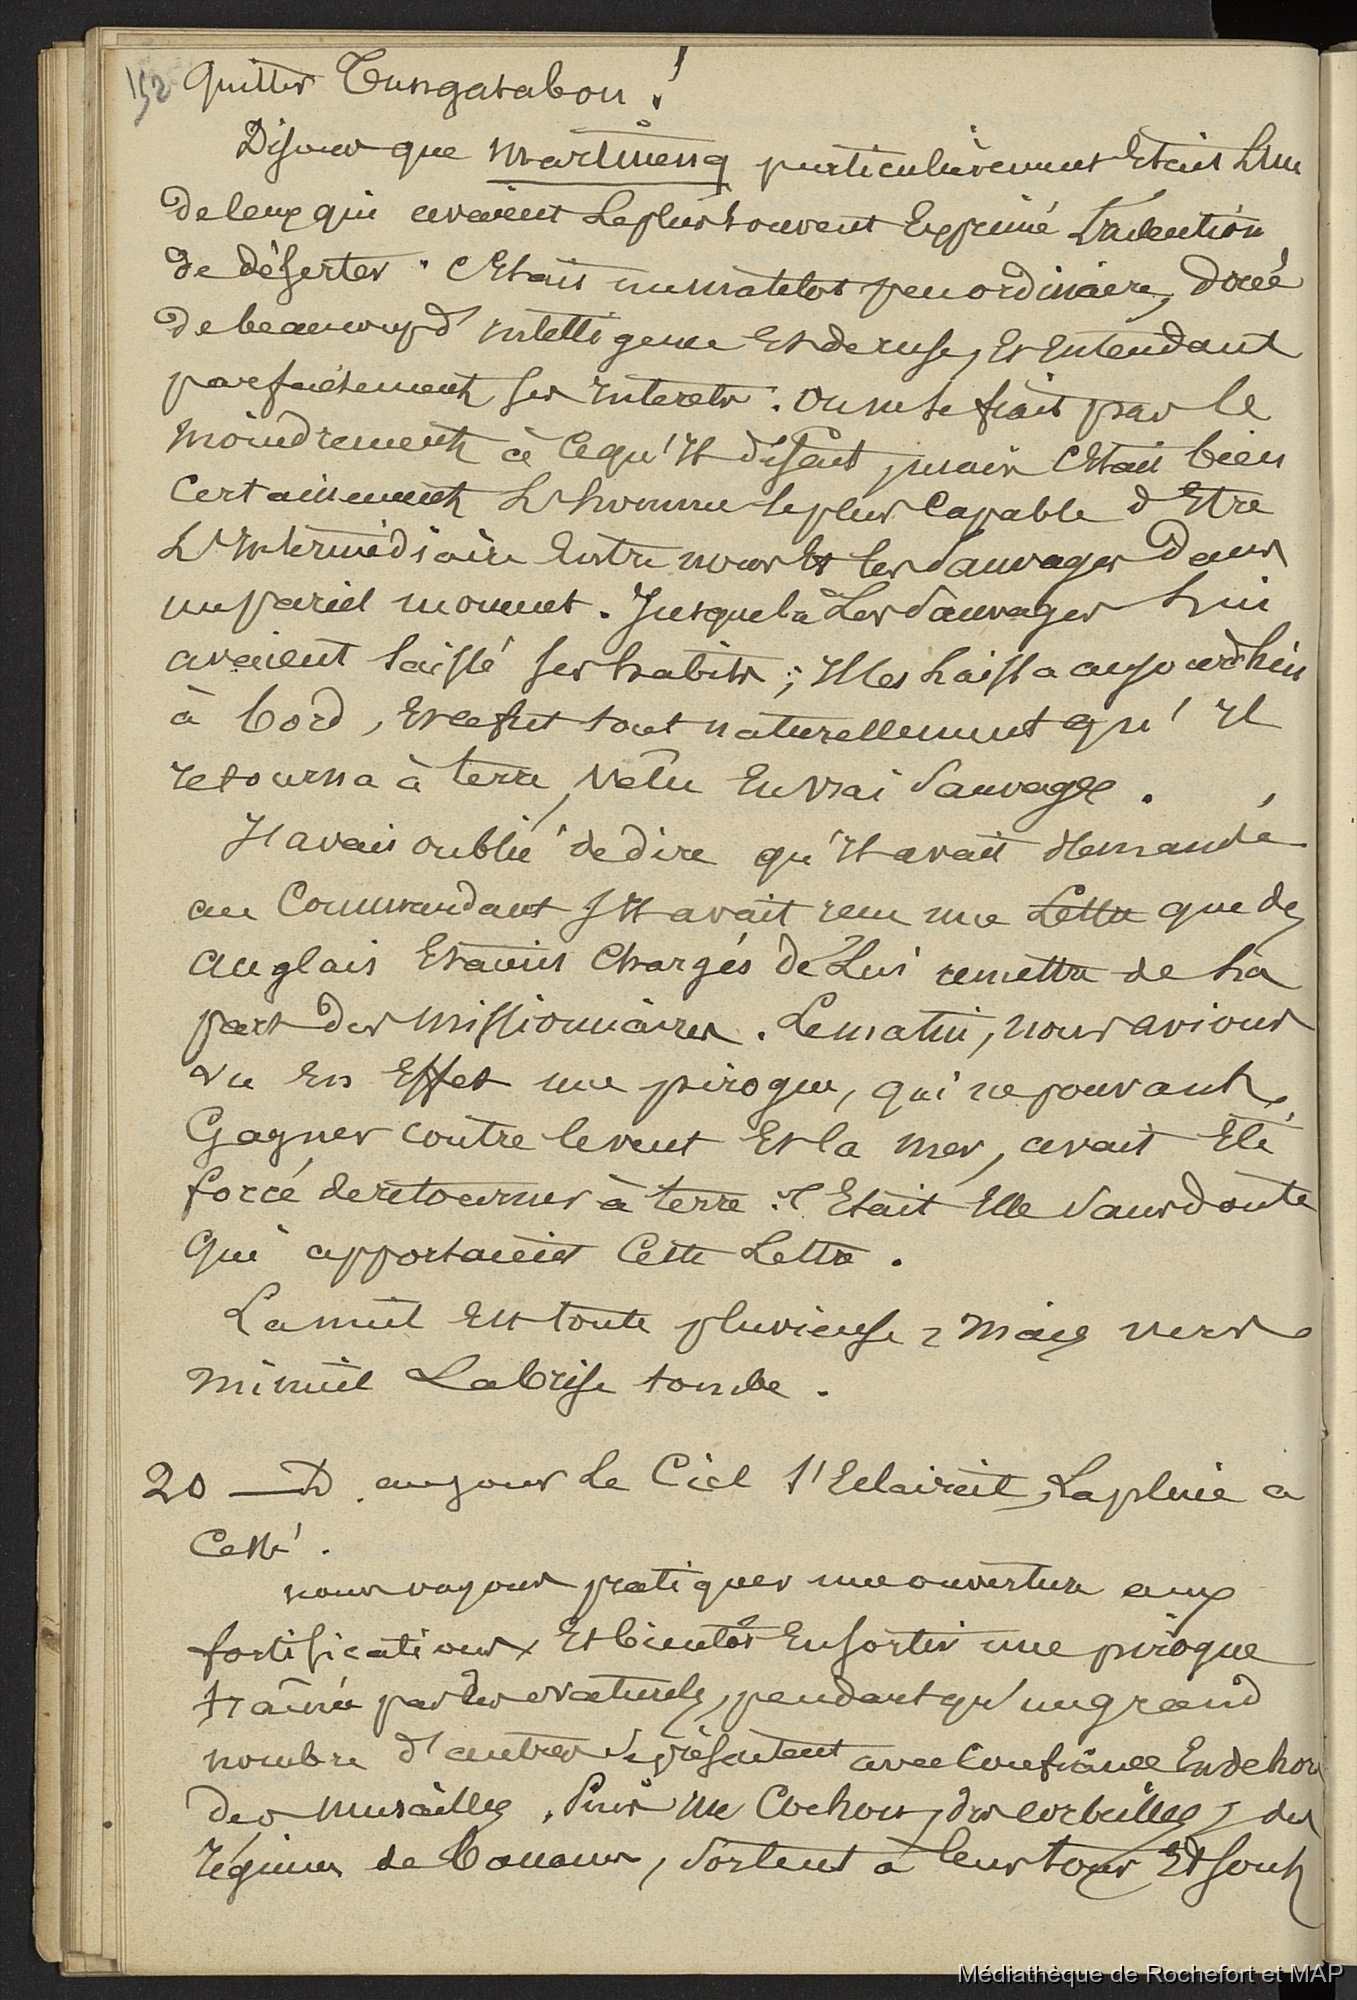 152
quitter Tungatabou !
Disons que Martineng particulièrement Etait L'un
De ceux qui avaient Le plus souvent Exprimé L'intention
De déserter. C'Etait un matelot peu ordinaire, doué
De beaucoup d'intelligence Et de ruse, Et Entendant
parfaitement ses interets. On ne se fiait pas le
moindrement à ce qu'Il disait, mais c'Etait bien
Certainement L'homme le plus Capable d'Etre
L'Intermédiaire Entre nous Et les Sauvages Dans
un pareil moment. Jusque là Les Sauvages Lui
avaient laissé ses habits ; Il les Laissa aujourd'hui
à bord, Et ce fut tout naturellement qu'Il
retourna à terre, vêtu En vrai Sauvage.
J'avais oublié de dire qu'Il avait demandé
au Commandant s'Il avait reçu une Lettre que des
Anglais Etaient Chargés de Lui remettre de La
part des missionnaires. Le matin, nous avions
vu En Effet une pirogue, qui ne pouvant
Gagner contre le vent Et la mer, avait Eté
forcé de retourner à terre. C'Etait Elle Sans doute
qui apportaient Cette Lettre.
La nuit Est toute pluvieuse, mais vers
minuit La brise tombe.
20 — D. au jour Le Ciel s'Eclaircit, La pluie a
Cessé.
nous voyons pratiquer une ouverture aux
fortifications, Et bientôt En sortir une pirogue
traînée par des Naturels, pendant qu'un grand
nombre d'autres se présentent avec Confiance En dehors
des murailles. Puis un Cochon, des corbeilles, des
régimes de bananes, Sortent à leur tour Et sont
Médiathèque de Rochefort et MAP